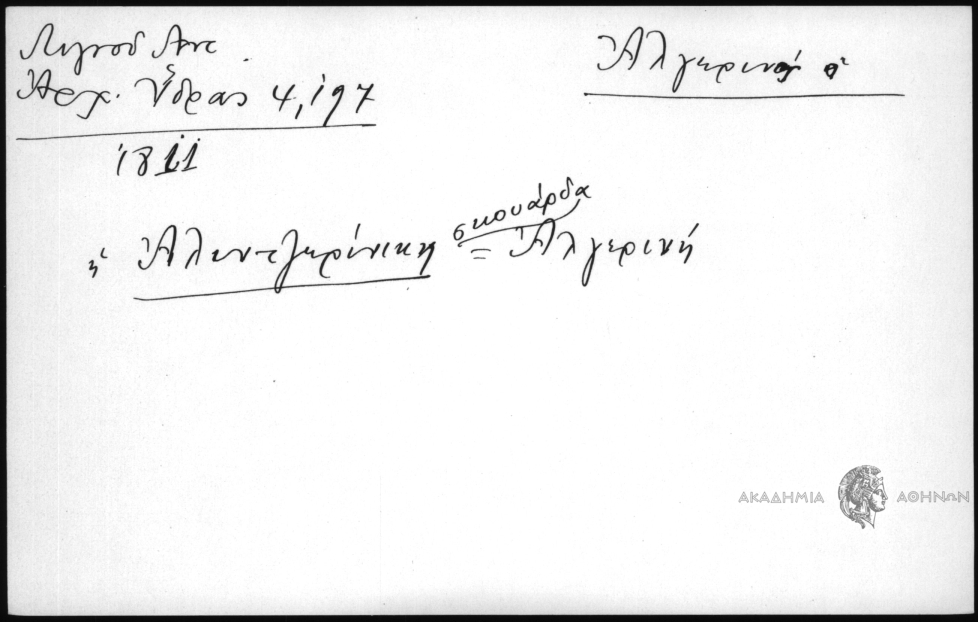 Λιγνοῦ Ἀντ
Ἀρχ. Ὕδρας 4, 197
1811
Ἀλγερινός ὁ
ἡ Ἀλεντζερίνικη σκουάρδα = Ἀλγερινή
ΑΚΑΔΗΜΙΑ ΑΘΗΝΩΝ